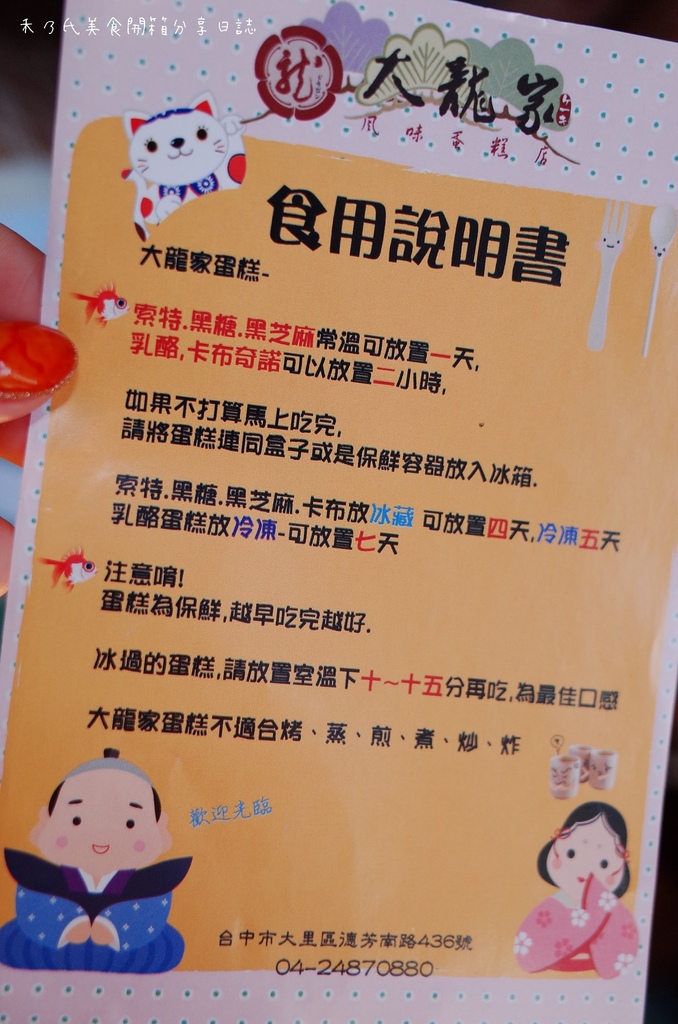 禾乃氏美食開箱分享日誌
龍
大龍家
風味蛋糕店
食用說明書
大龍家蛋糕-
索特.黑糖.黑芝麻常溫可放置一天,
乳酪,卡布奇諾可以放置二小時,
如果不打算馬上吃完,
請將蛋糕連同盒子或是保鮮容器放入冰箱.
索特.黑糖.黑芝麻.卡布放冰藏 可放置四天,冷凍五天
乳酪蛋糕放冷凍-可放置七天
注意唷!
蛋糕為保鮮,越早吃完越好.
冰過的蛋糕,請放置室溫下十~十五分再吃,為最佳口感
大龍家蛋糕不適合烤、蒸、煎、煮、炒、炸
歡迎光臨
台中市大里區德芳南路436號
04-24870880